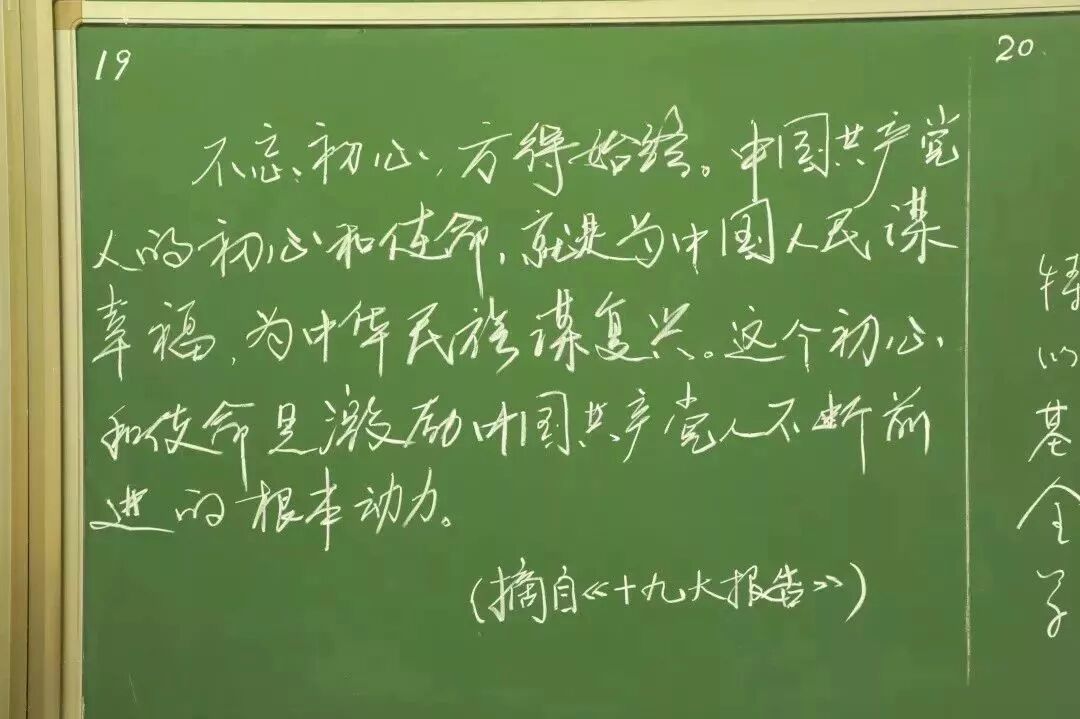 19
不忘初心，方得始终。中国共产党
人的初心和使命，就是为中国人民谋
幸福，为中华民族谋复兴。这个初心
和使命是激励中国共产党人不断前
进的根本动力。
（摘自《十九大报告》）
20.
的
基